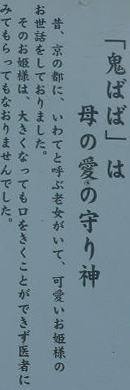 「鬼ばば」は
母の愛の守り神
昔、京の都に、いわてと呼ぶ老女がいて、可愛いお姫様の
お世話をしておりました。
そのお姫様は、大きくなっても口をきくことができず医者に
みてもらってもなおりませんでした。